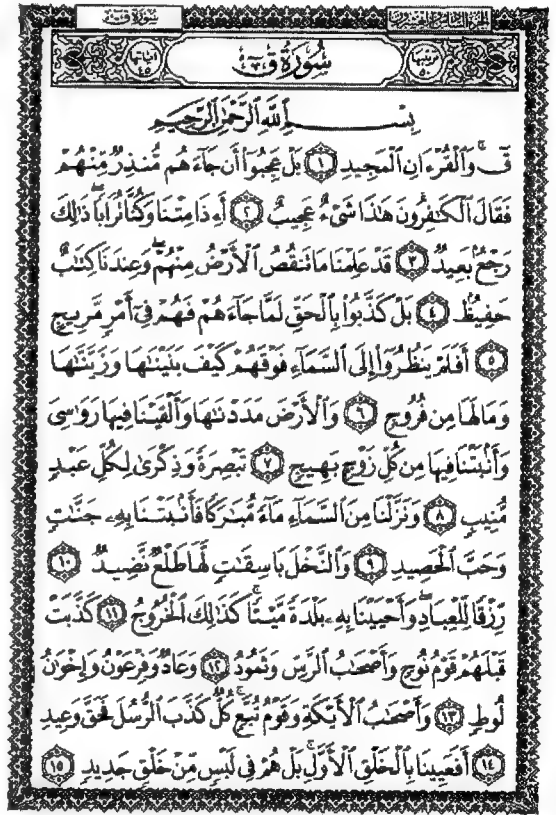 سُورَةُ قٓ
ترتيبها ٥٠
سُورَةُ قٓ
آياتها ٤٥
بِسْمِ اللَّهِ الرَّحْمَٰنِ الرَّحِيمِ
قٓۚ وَالْقُرْءَانِ الْمَجِيدِ ۝١ بَلْ عَجِبُوٓا۟ أَن جَآءَهُم مُّنذِرٌ مِّنْهُمْ
فَقَالَ الْكَٰفِرُونَ هَٰذَا شَىْءٌ عَجِيبٌ ۝٢ أَءِذَا مِتْنَا وَكُنَّا تُرَابًا ۖ ذَٰلِكَ
رَجْعٌۢ بَعِيدٌ ۝٣ قَدْ عَلِمْنَا مَا تَنقُصُ الْأَرْضُ مِنْهُمْ ۖ وَعِندَنَا كِتَٰبٌ
حَفِيظٌۢ ۝٤ بَلْ كَذَّبُوا۟ بِالْحَقِّ لَمَّا جَآءَهُمْ فَهُمْ فِىٓ أَمْرٍ مَّرِيجٍ
۝٥ أَفَلَمْ يَنظُرُوٓا۟ إِلَى السَّمَآءِ فَوْقَهُمْ كَيْفَ بَنَيْنَٰهَا وَزَيَّنَّٰهَا
وَمَا لَهَا مِن فُرُوجٍ ۝٦ وَالْأَرْضَ مَدَدْنَٰهَا وَأَلْقَيْنَا فِيهَا رَوَٰسِىَ
وَأَنۢبَتْنَا فِيهَا مِن كُلِّ زَوْجٍۭ بَهِيجٍ ۝٧ تَبْصِرَةً وَذِكْرَىٰ لِكُلِّ عَبْدٍ
مُّنِيبٍ ۝٨ وَنَزَّلْنَا مِنَ السَّمَآءِ مَآءً مُّبَٰرَكًا فَأَنۢبَتْنَا بِهِۦ جَنَّٰتٍ
وَحَبَّ الْحَصِيدِ ۝٩ وَالنَّخْلَ بَاسِقَٰتٍ لَّهَا طَلْعٌ نَّضِيدٌ ۝١٠
رِّزْقًا لِّلْعِبَادِ ۖ وَأَحْيَيْنَا بِهِۦ بَلْدَةً مَّيْتًا ۚ كَذَٰلِكَ الْخُرُوجُ ۝١١ كَذَّبَتْ
قَبْلَهُمْ قَوْمُ نُوحٍ وَأَصْحَٰبُ الرَّسِّ وَثَمُودُ ۝١٢ وَعَادٌ وَفِرْعَوْنُ وَإِخْوَٰنُ
لُوطٍ ۝١٣ وَأَصْحَٰبُ الْأَيْكَةِ وَقَوْمُ تُبَّعٍ ۚ كُلٌّ كَذَّبَ الرُّسُلَ فَحَقَّ وَعِيدِ
۝١٤ أَفَعَيِينَا بِالْخَلْقِ الْأَوَّلِ ۚ بَلْ هُمْ فِى لَبْسٍ مِّنْ خَلْقٍ جَدِيدٍ ۝١٥